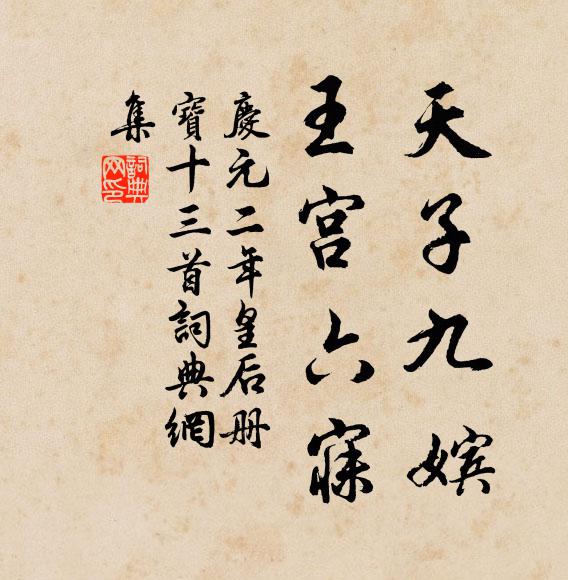 天子九嫔
王宫六寐
慶元二年皇后册
寶十三首詞典網
集
詞典
网印